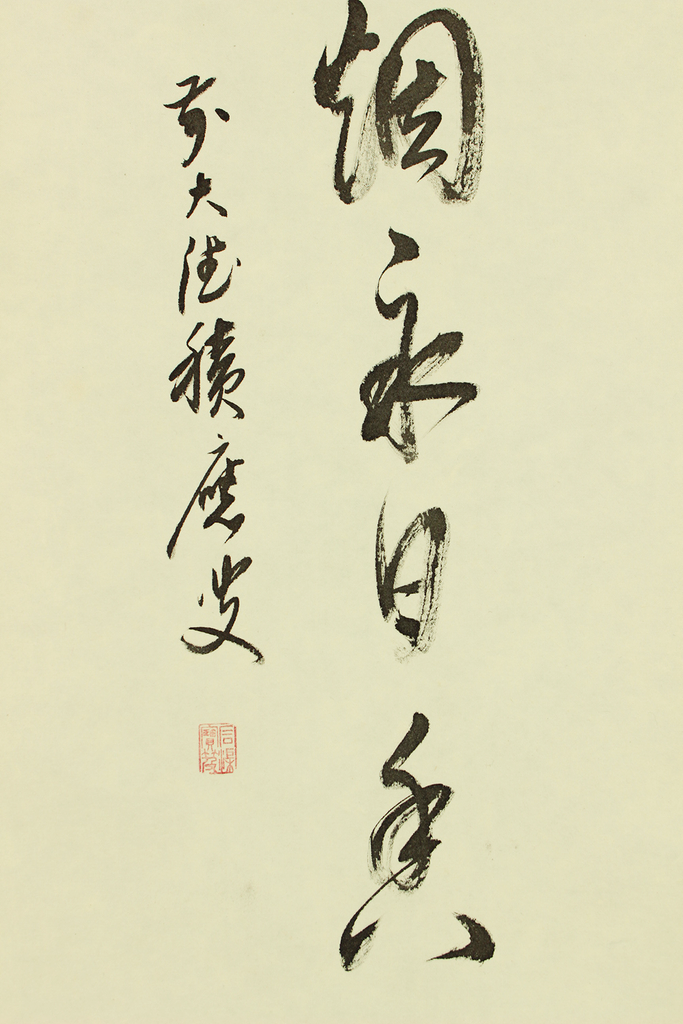 烟永日香
前大徳積應叟